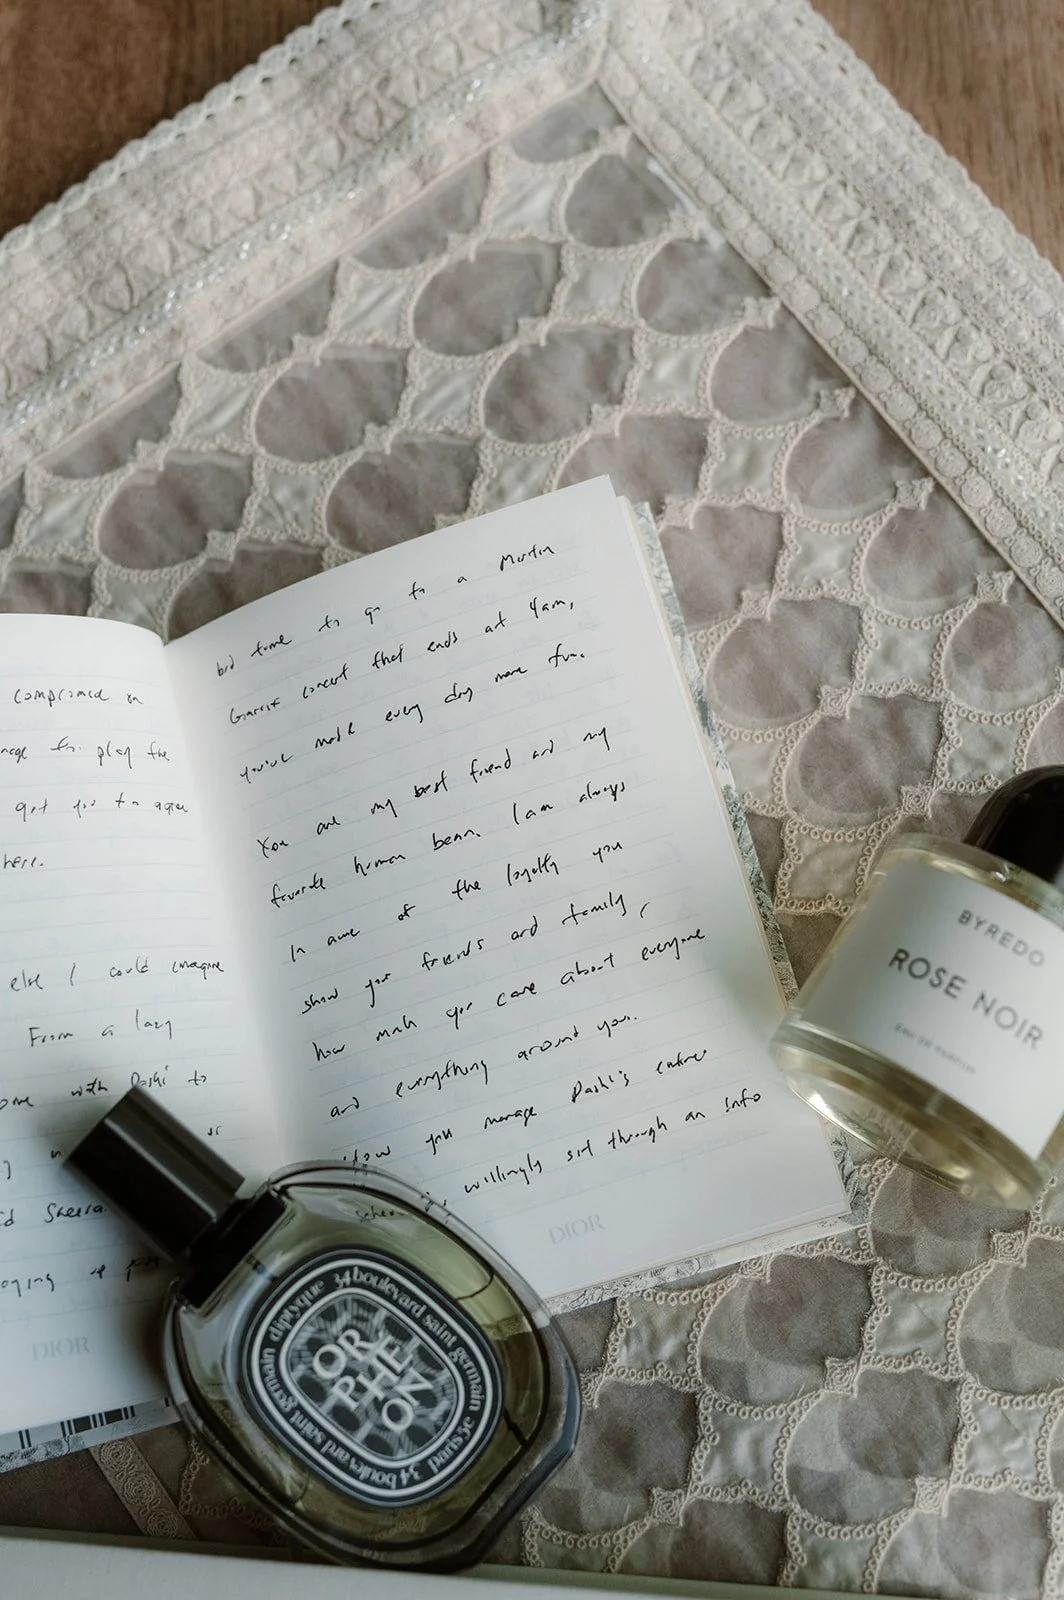 compromise on
play the
got you to agree
here.
else I could imagine
From a lazy
with Dashi to
DIOR
bed time to go to a Martin
Garrix concert that ends at 4am,
you've made every day more fun.
You are my best friend and my
favorite human bean. I am always
in awe of the loyalty you
show your friends and family,
how much you care about everyone
and everything around you.
How you manage Dashi's entire
willingly sit through an info
DIOR
BYREDO
ROSE NOIR
EAU DE PARFUM
diptyque 34 boulevard saint germain
ORPHEON
34 boulevard saint germain